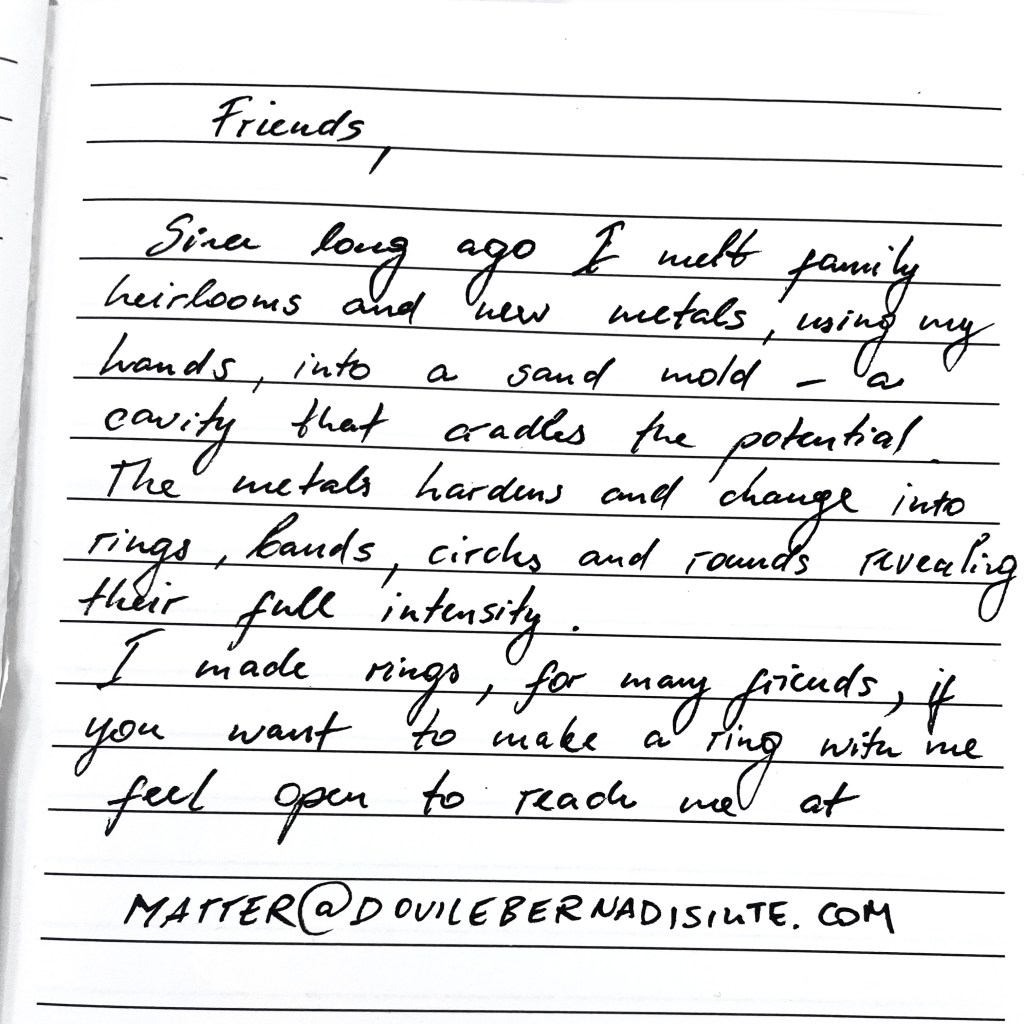 Friends,
Since long ago I melt family
heirlooms and new metals, using my
hands, into a sand mold – a
cavity that cradles the potential.
The metals hardens and change into
rings, bands, circles and rounds revealing
their full intensity.
I made rings, for many friends, if
you want to make a ring with me
feel open to reach me at
MATTER@DOVILEBERNADISIUTE.COM